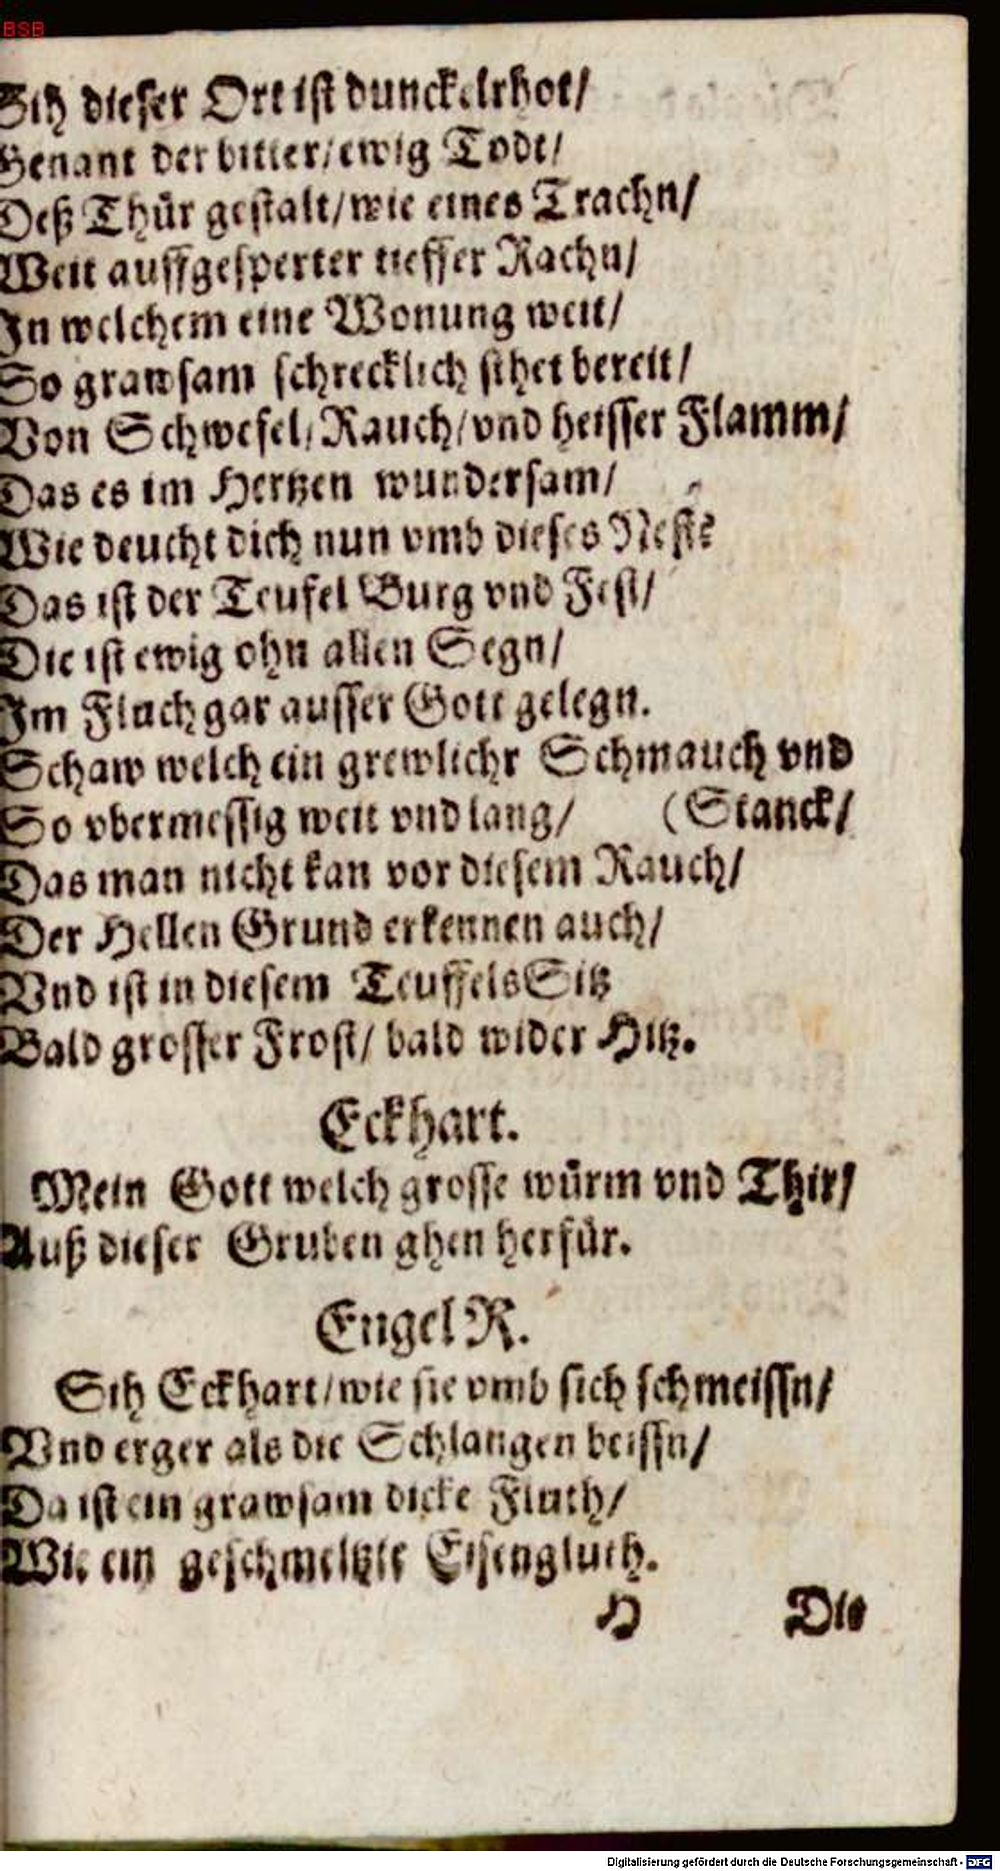 BSB
Sih dieser Ort ist dunckelrhot/
Genant der bitter/ewig Todt/
Deß Thür gestalt/wie eines Trachn/
Weit auffgesperter tieffer Rachn/
In welchem eine Wonung weit/
So grawsam schrecklich sihet bereit/
Von Schwefel/Rauch/vnd heisser Flamm/
Das es im Hertzen wundersam/
Wie deucht dich nun vmb dieses Nest?
Das ist der Teufel Burg vnd Fest/
Die ist ewig ohn allen Segn/
Im Fluch gar ausser Gott gelegn.
Schaw welch ein grewlichr Schmauch vnd
So vbermessig weit vnd lang/ (Stanck/
Das man nicht kan vor diesem Rauch/
Der Hellen Grund erkennen auch/
Vnd ist in diesem TeuffelsSitz
Bald grosser Frost/ bald wider Hitz.
Eckhart.
Mein Gott welch grosse würm vnd Thir/
Auß dieser Gruben ghen herfür.
Engel R.
Sih Eckhart/wie sie vmb sich schmeissn/
Vnd erger als die Schlangen beissn/
Da ist ein grawsam dicke Fluth/
Wie ein geschmeltzte Eisengluth.
H Die
Digitalisierung gefördert durch die Deutsche Forschungsgemeinschaft - DFG